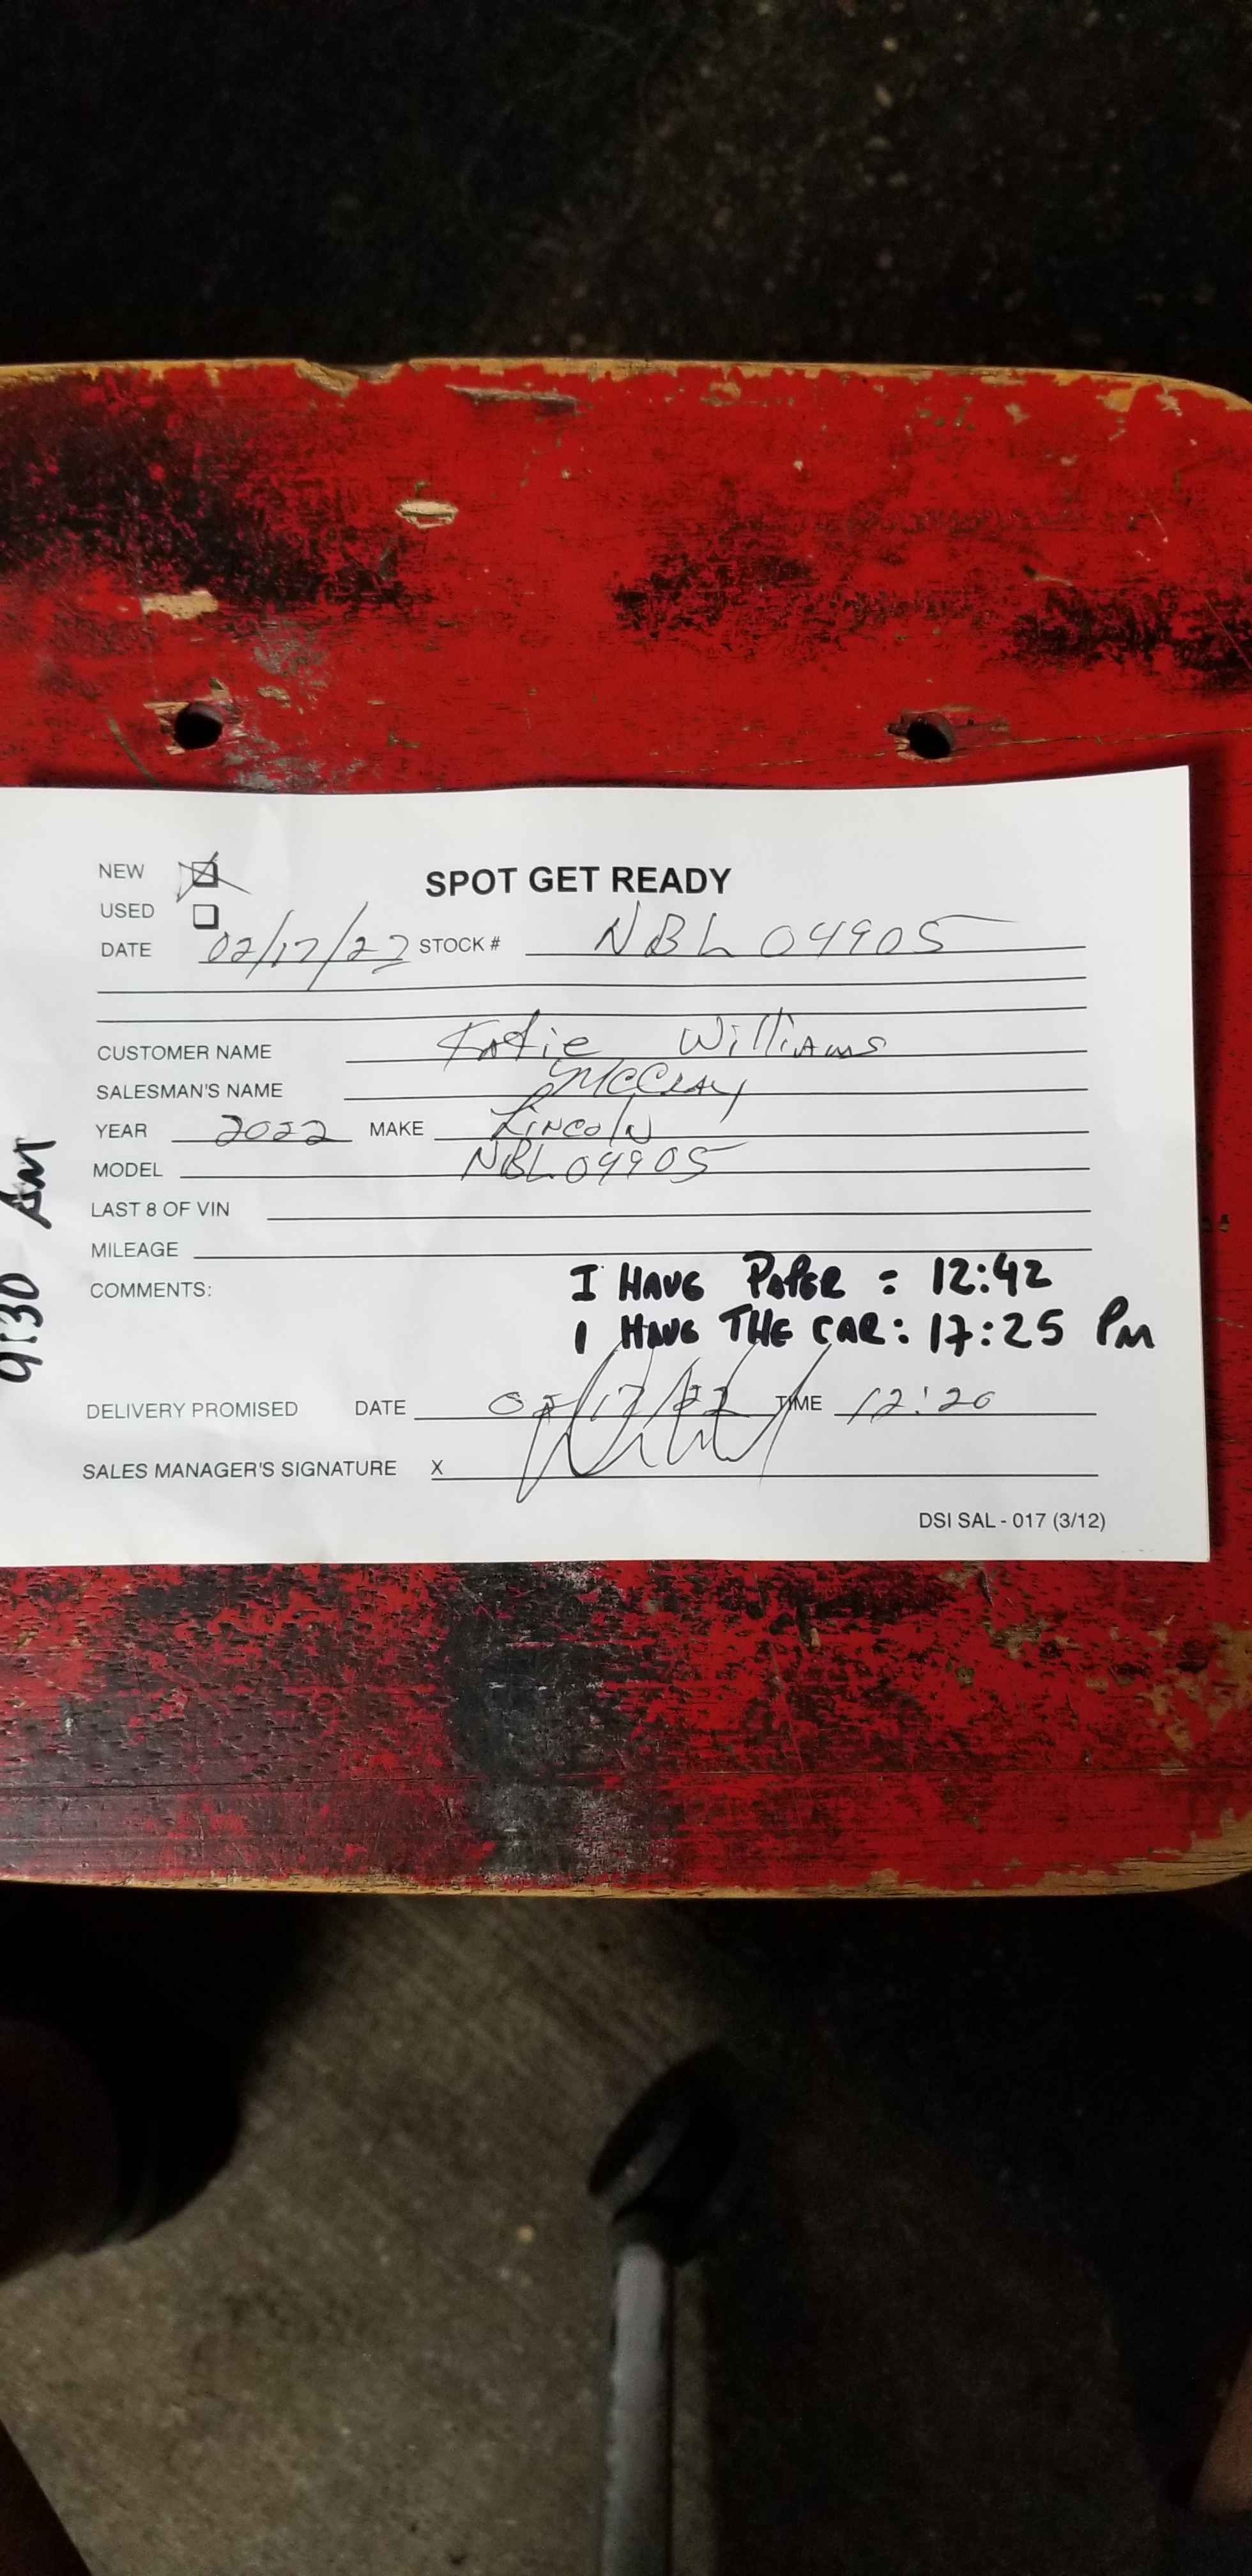 NEW
SPOT GET READY
USED
DATE 02/17/22 STOCK # NBL04905
CUSTOMER NAME Katie Williams
SALESMAN'S NAME McClay
YEAR 2022 MAKE Lincoln
MODEL NBL04905
LAST 8 OF VIN
MILEAGE
COMMENTS:
I HAVE PAPER = 12:42
I HAVE THE CAR: 17:25 PM
DELIVERY PROMISED DATE 02/17/22 TIME 12:20
SALES MANAGER'S SIGNATURE X
DSI SAL - 017 (3/12)
9:30 AM